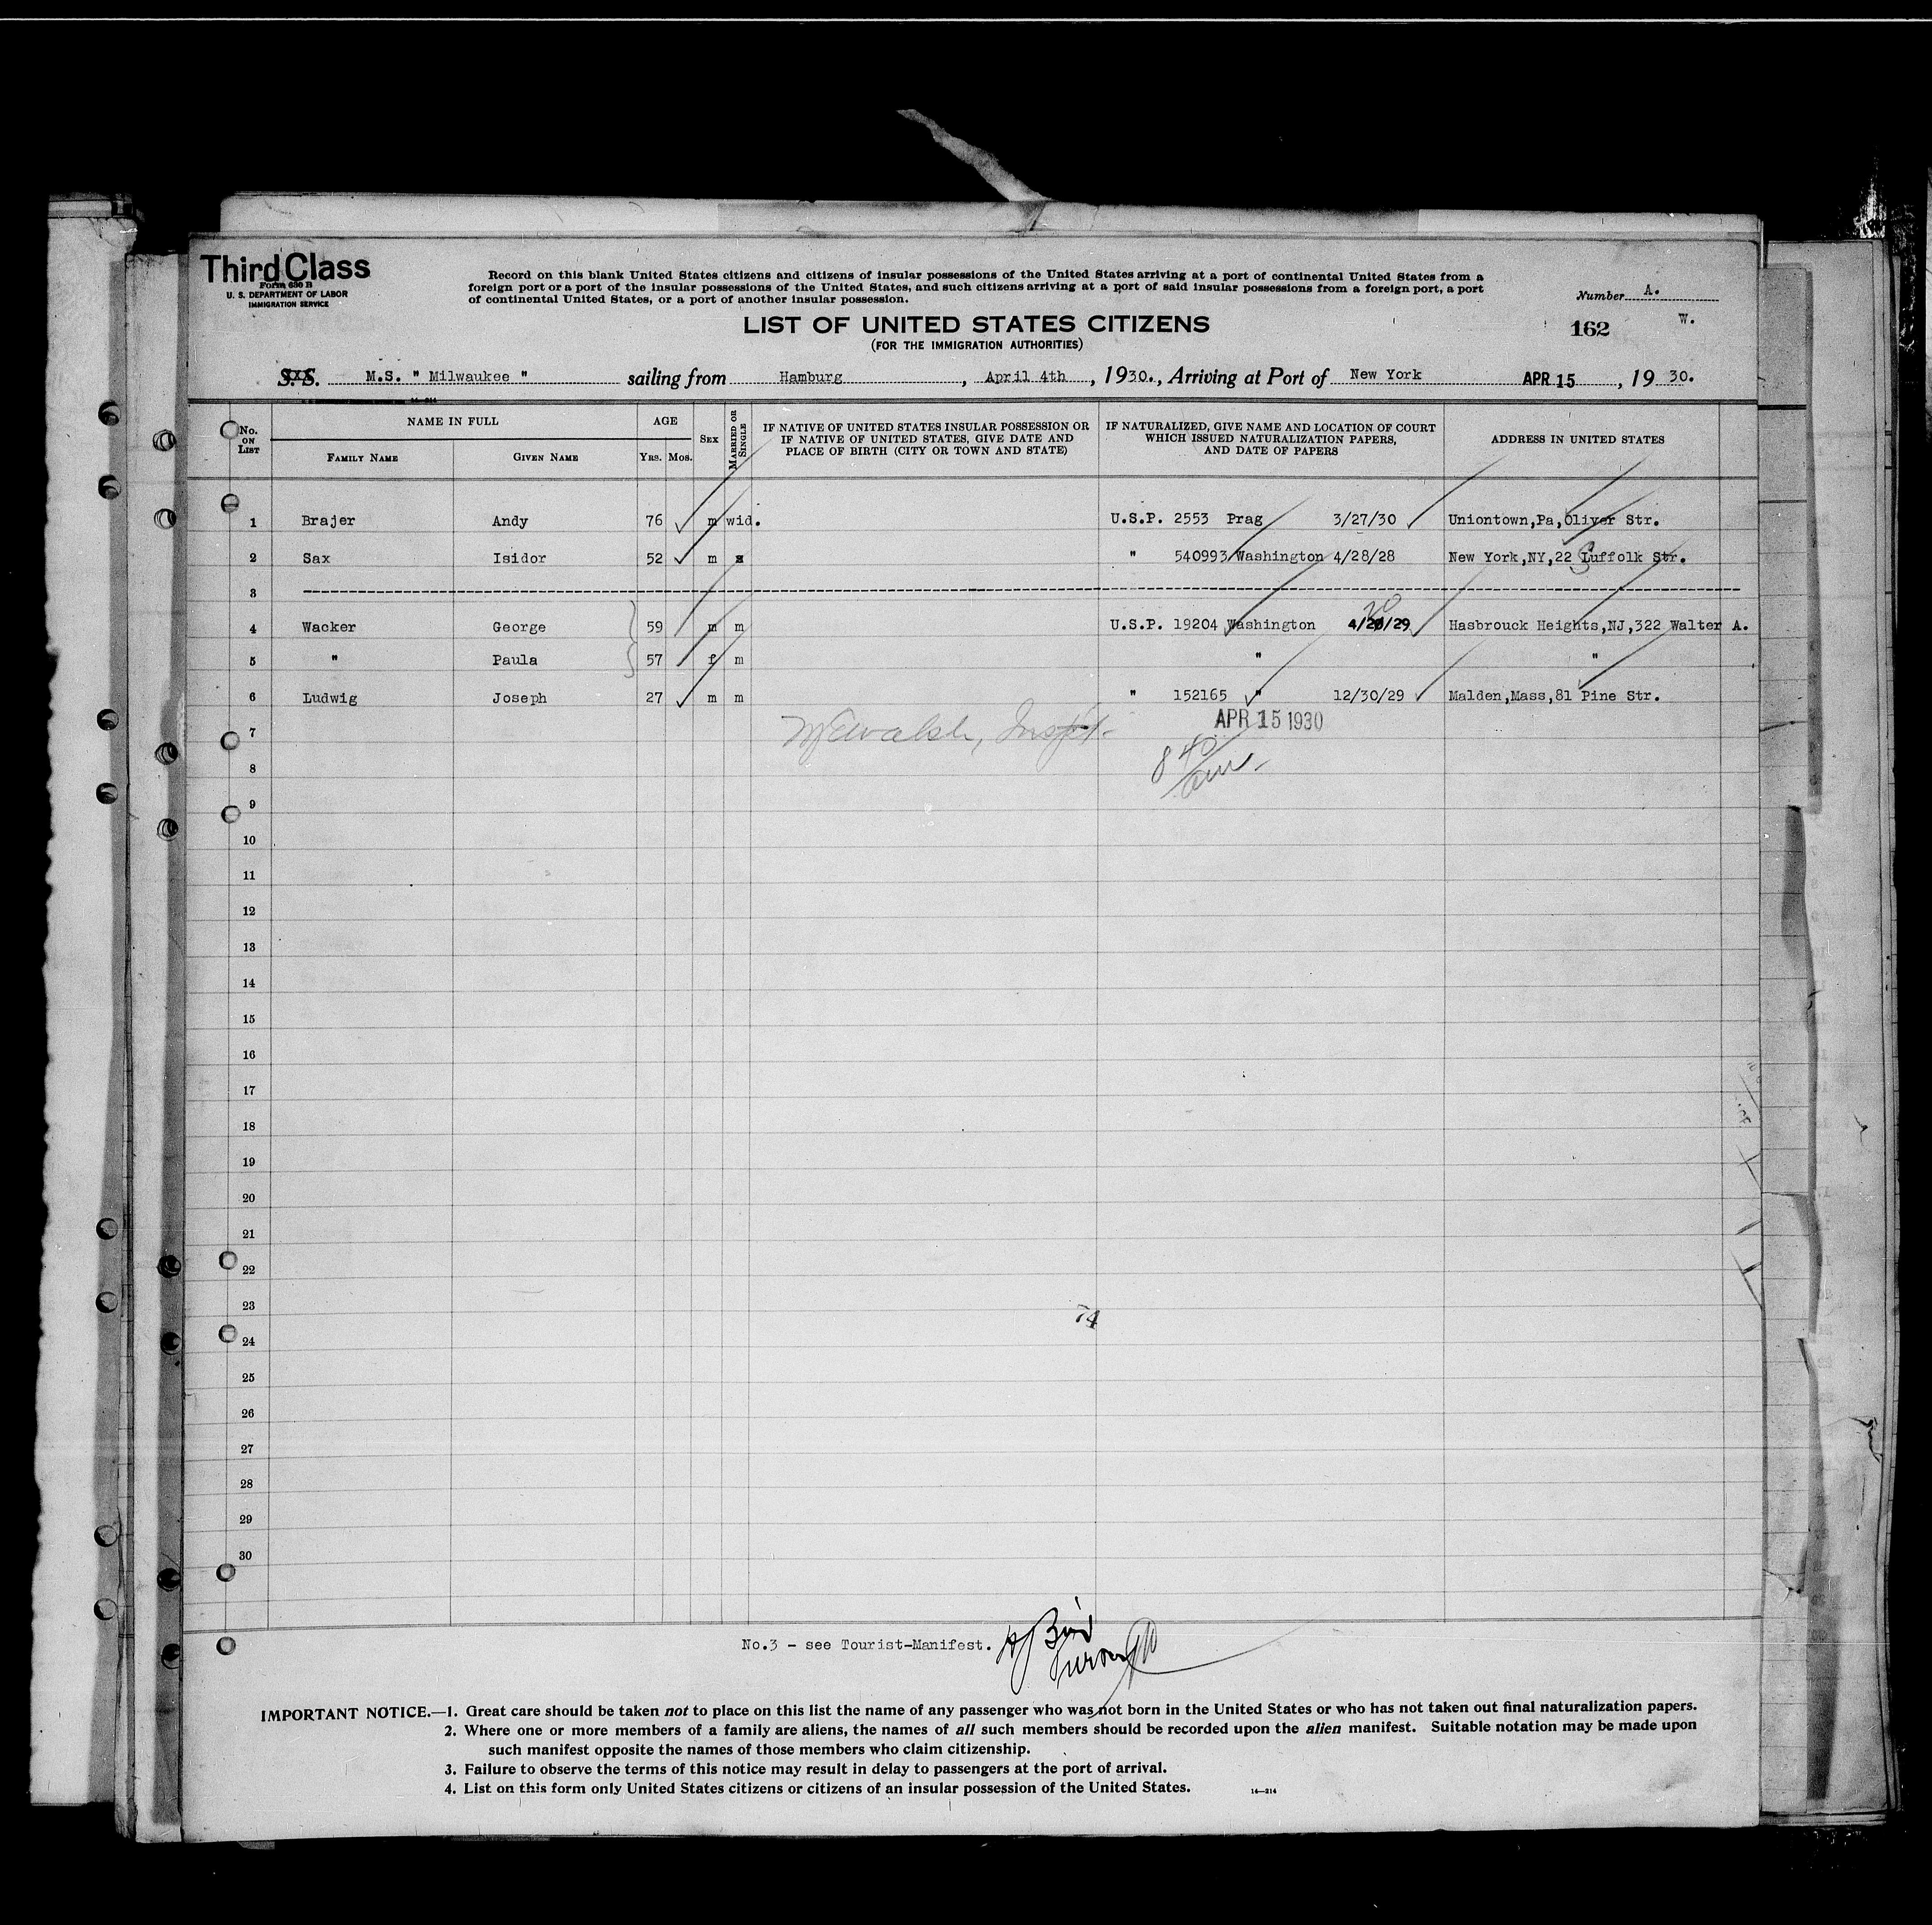 Third Class
Form 630 B
U. S. DEPARTMENT OF LABOR
IMMIGRATION SERVICE
Record on this blank United States citizens and citizens of insular possessions of the United States arriving at a port of continental United States from a
foreign port or a port of the insular possessions of the United States, and such citizens arriving at a port of said insular possessions from a foreign port, a port
of continental United States, or a port of another insular possession.
Number A.
LIST OF UNITED STATES CITIZENS
162 W.
(FOR THE IMMIGRATION AUTHORITIES)
S. S. M.S. " Milwaukee " sailing from Hamburg, April 4th, 1930., Arriving at Port of New York APR 15, 1930.
14-214
No. ON LIST
NAME IN FULL
FAMILY NAME GIVEN NAME
AGE
YRS. MOS.
SEX
MARRIED OR SINGLE
IF NATIVE OF UNITED STATES INSULAR POSSESSION OR
IF NATIVE OF UNITED STATES, GIVE DATE AND
PLACE OF BIRTH (CITY OR TOWN AND STATE)
IF NATURALIZED, GIVE NAME AND LOCATION OF COURT
WHICH ISSUED NATURALIZATION PAPERS,
AND DATE OF PAPERS
ADDRESS IN UNITED STATES
1 Brajer Andy 76 m wid. U.S.P. 2553 Prag 3/27/30 Uniontown,Pa,Oliver Str.
2 Sax Isidor 52 m s " 540993 Washington 4/28/28 New York,NY,22 Suffolk Str.
3
4 Wacker George 59 m m U.S.P. 19204 Washington 4/20/29 20 Hasbrouck Heights,NJ,322 Walter A.
5 " Paula 57 f m " "
6 Ludwig Joseph 27 m m " 152165 " 12/30/29 Malden,Mass,81 Pine Str.
7 Inspt. APR 15 1930
8 8 40 am.
9
10
11
12
13
14
15
16
17
18
19
20
21
22
23 74
24
25
26
27
28
29
30
No.3 - see Tourist-Manifest.
IMPORTANT NOTICE.—1. Great care should be taken not to place on this list the name of any passenger who was not born in the United States or who has not taken out final naturalization papers.
2. Where one or more members of a family are aliens, the names of all such members should be recorded upon the alien manifest. Suitable notation may be made upon
such manifest opposite the names of those members who claim citizenship.
3. Failure to observe the terms of this notice may result in delay to passengers at the port of arrival.
4. List on this form only United States citizens or citizens of an insular possession of the United States. 14-214